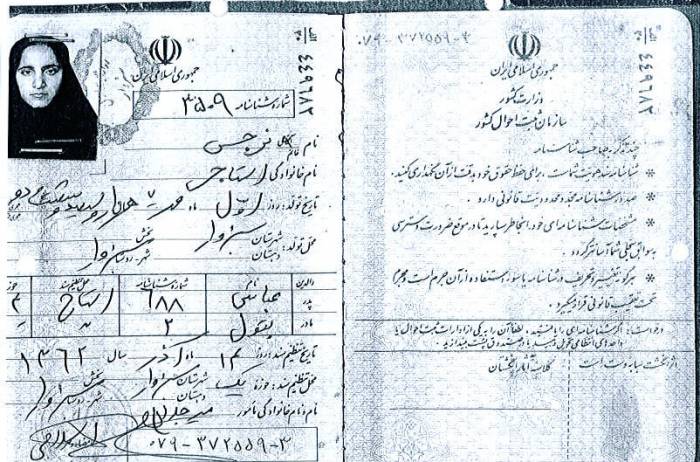 جمهوری اسلامی ایران
شماره شناسنامه ۳۵۰۹
نام آقای خانم نرجس
نام خانوادگی استاجی
تاریخ تولد: روز اول ماه مهر ۷ هزار و سیصد و شصت و دو
محل تولد: شهرستان سبزوار بخش
دهستان شهر-روستای سبزوار
والدین نام شماره شناسنامه محل تنظیم سند حوزه
پدر عباس ۶۸۸ استاج
مادر بتول ۲
تاریخ تنظیم سند: روز ۱۴ ماه آذر سال ۱۳۶۲
محل تنظیم سند: حوزه یک شهرستان سبزوار بخش
دهستان شهر-روستای سبزوار
نام و نام خانوادگی مأمور
۰۷۹-۳۷۲۵۵۹-۳
۴۴۹۶۸۲
۰۷۹-۳۷۲۵۵۹-۳
جمهوری اسلامی ایران
وزارت کشور
سازمان ثبت احوال کشور
چند تذکر به صاحب شناسنامه
* شناسنامه سند هویت شماست، برای حفظ حقوق خود به دقت از آن نگهداری کنید.
* صدور شناسنامه مجدد محدودیت قانونی دارد.
* مشخصات شناسنامه‌ای خود را بخاطر بسپارید تا در موقع ضرورت دسترسی
به سوابق سجلی شما آسانتر گردد.
* هرگونه تغییر و تحریف در شناسنامه یا سوء استفاده از آن جرم است و مجرم
تحت تعقیب قانونی قرار میگیرد.
درخواست: اگر شناسنامه‌ای را یافتید، لطفا آن را به یکی از ادارات ثبت احوال یا
واحدهای انتظامی تحویل دهید یا در صندوق پست بیندازید.
اثر انگشت سبابه دست است
کلاسه آثار انگشتان
۴۴۹۶۸۲